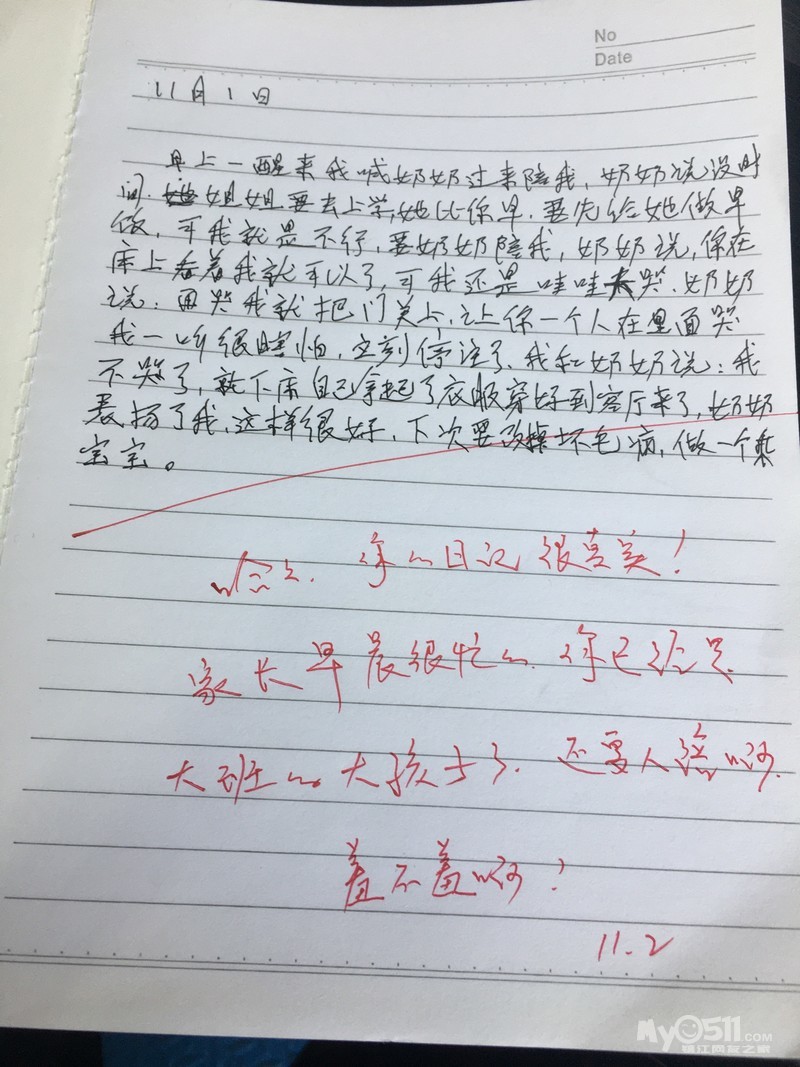 No
Date
11月1日
早上一醒来我喊奶奶过来陪我,奶奶说没时
间.姐姐要去上学,她比你早.要先给她做早
饭,可我就是不行,要奶奶陪我,奶奶说,你在
床上看着我就可以了,可我还是哇哇大哭.奶奶
说:再哭我就把门关上,让你一个人在里面哭
我一听很害怕,立刻停注了.我和奶奶说:我
不哭了,就下床自己拿起了衣服穿好到客厅来了,奶奶
表扬了我,这样很好,下次要改掉坏毛病,做一个乖
宝宝。
你的日记很真实!
家长早晨很忙的.你已经是
大班的大孩子了.还要人陪啊.
羞不羞啊?
11.2
My0511.COM
镇江网友之家